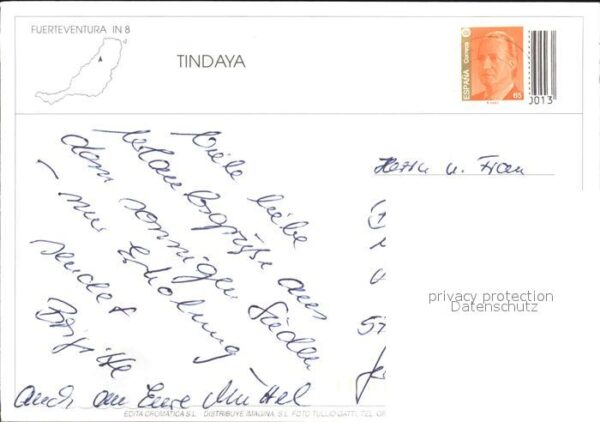 FUERTEVENTURA IN 8
TINDAYA
ESPAÑA
Correos
65
J013
Viele liebe
Urlaubsgrüße aus
dem sonnigen Süden
– nur Erholung –
sendet
Brigitte
auch an Eure Muttel
Herrn u. Frau
privacy protection
Datenschutz
EDITA CROMATICA S.L. DISTRIBUYE IMAGINA, S.L. FOTO TULLIO GATTI, TEL.